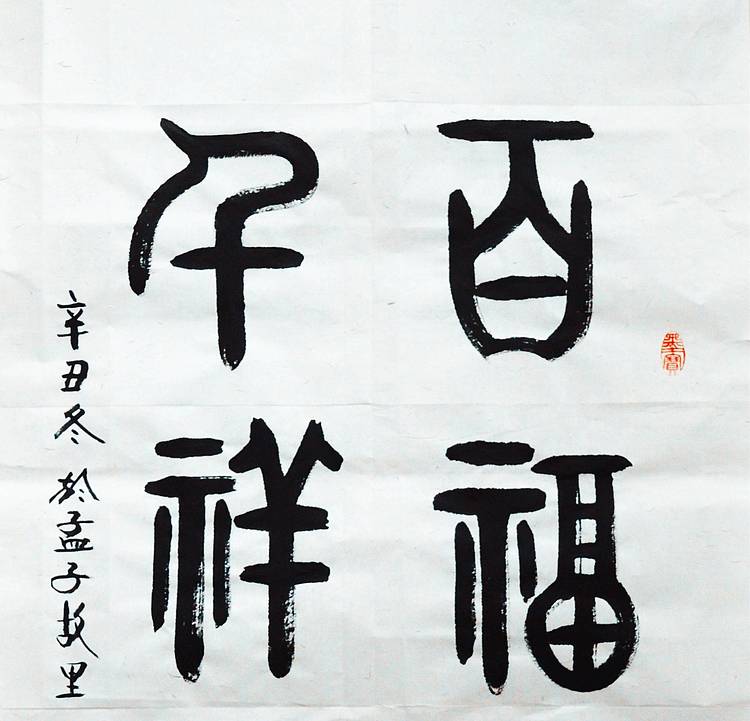 百福
千祥
辛丑冬於孟子故里